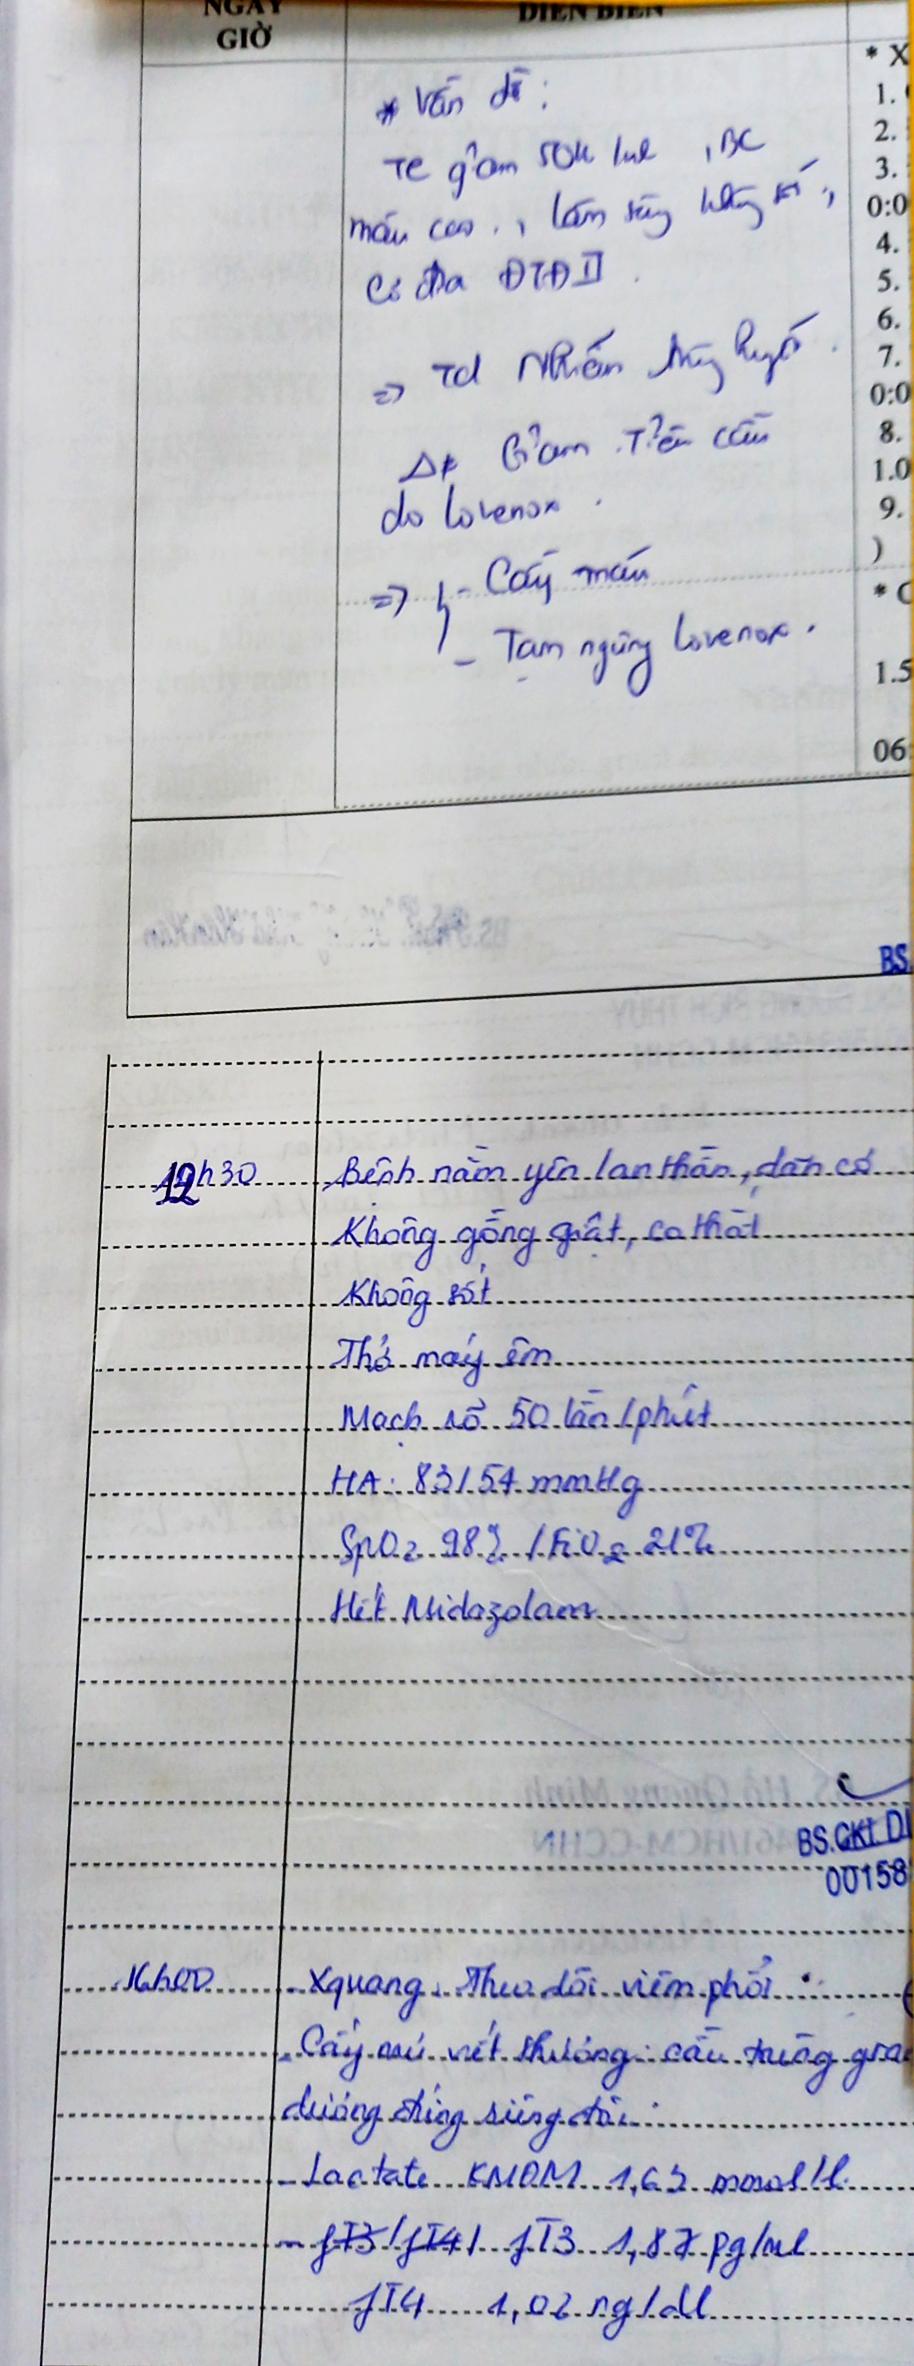 NGÀY
GIỜ
DIỄN BIẾN
* Vấn đề:
TC giảm 50k, BC
máu cao, lâm sàng không sốt,
Có đtra ĐTĐ II
=> Td Nhiễm trùng huyết.
Δ≠ Giảm Tiểu cầu
do lovenox.
=> - Cấy máu
- Tạm ngừng lovenox.
* X
1.
2.
3.
0:0
4.
5.
6.
7.
0:0
8.
1.0
9.
)
* C
1.5
06
BS
12h30
Bệnh nằm yên lan thần, dãn cơ
Không gồng giật, co thắt
Không sốt
Thở máy êm
Mạch rõ 50 lần/phút
HA: 83/54 mmHg
SpO2 98% / FiO2 21%
Hết Midazolam
BS.CKI D
00158
16h00
- Xquang: Theo dõi viêm phổi
- Cấy mủ vết thương: cầu trùng gra
dương đứng riêng đôi
- Lactate KMĐM 1,63 mmol/l
- fT3/fT4/ fT3 1,87 pg/ml
fT4 1,02 ng/dl